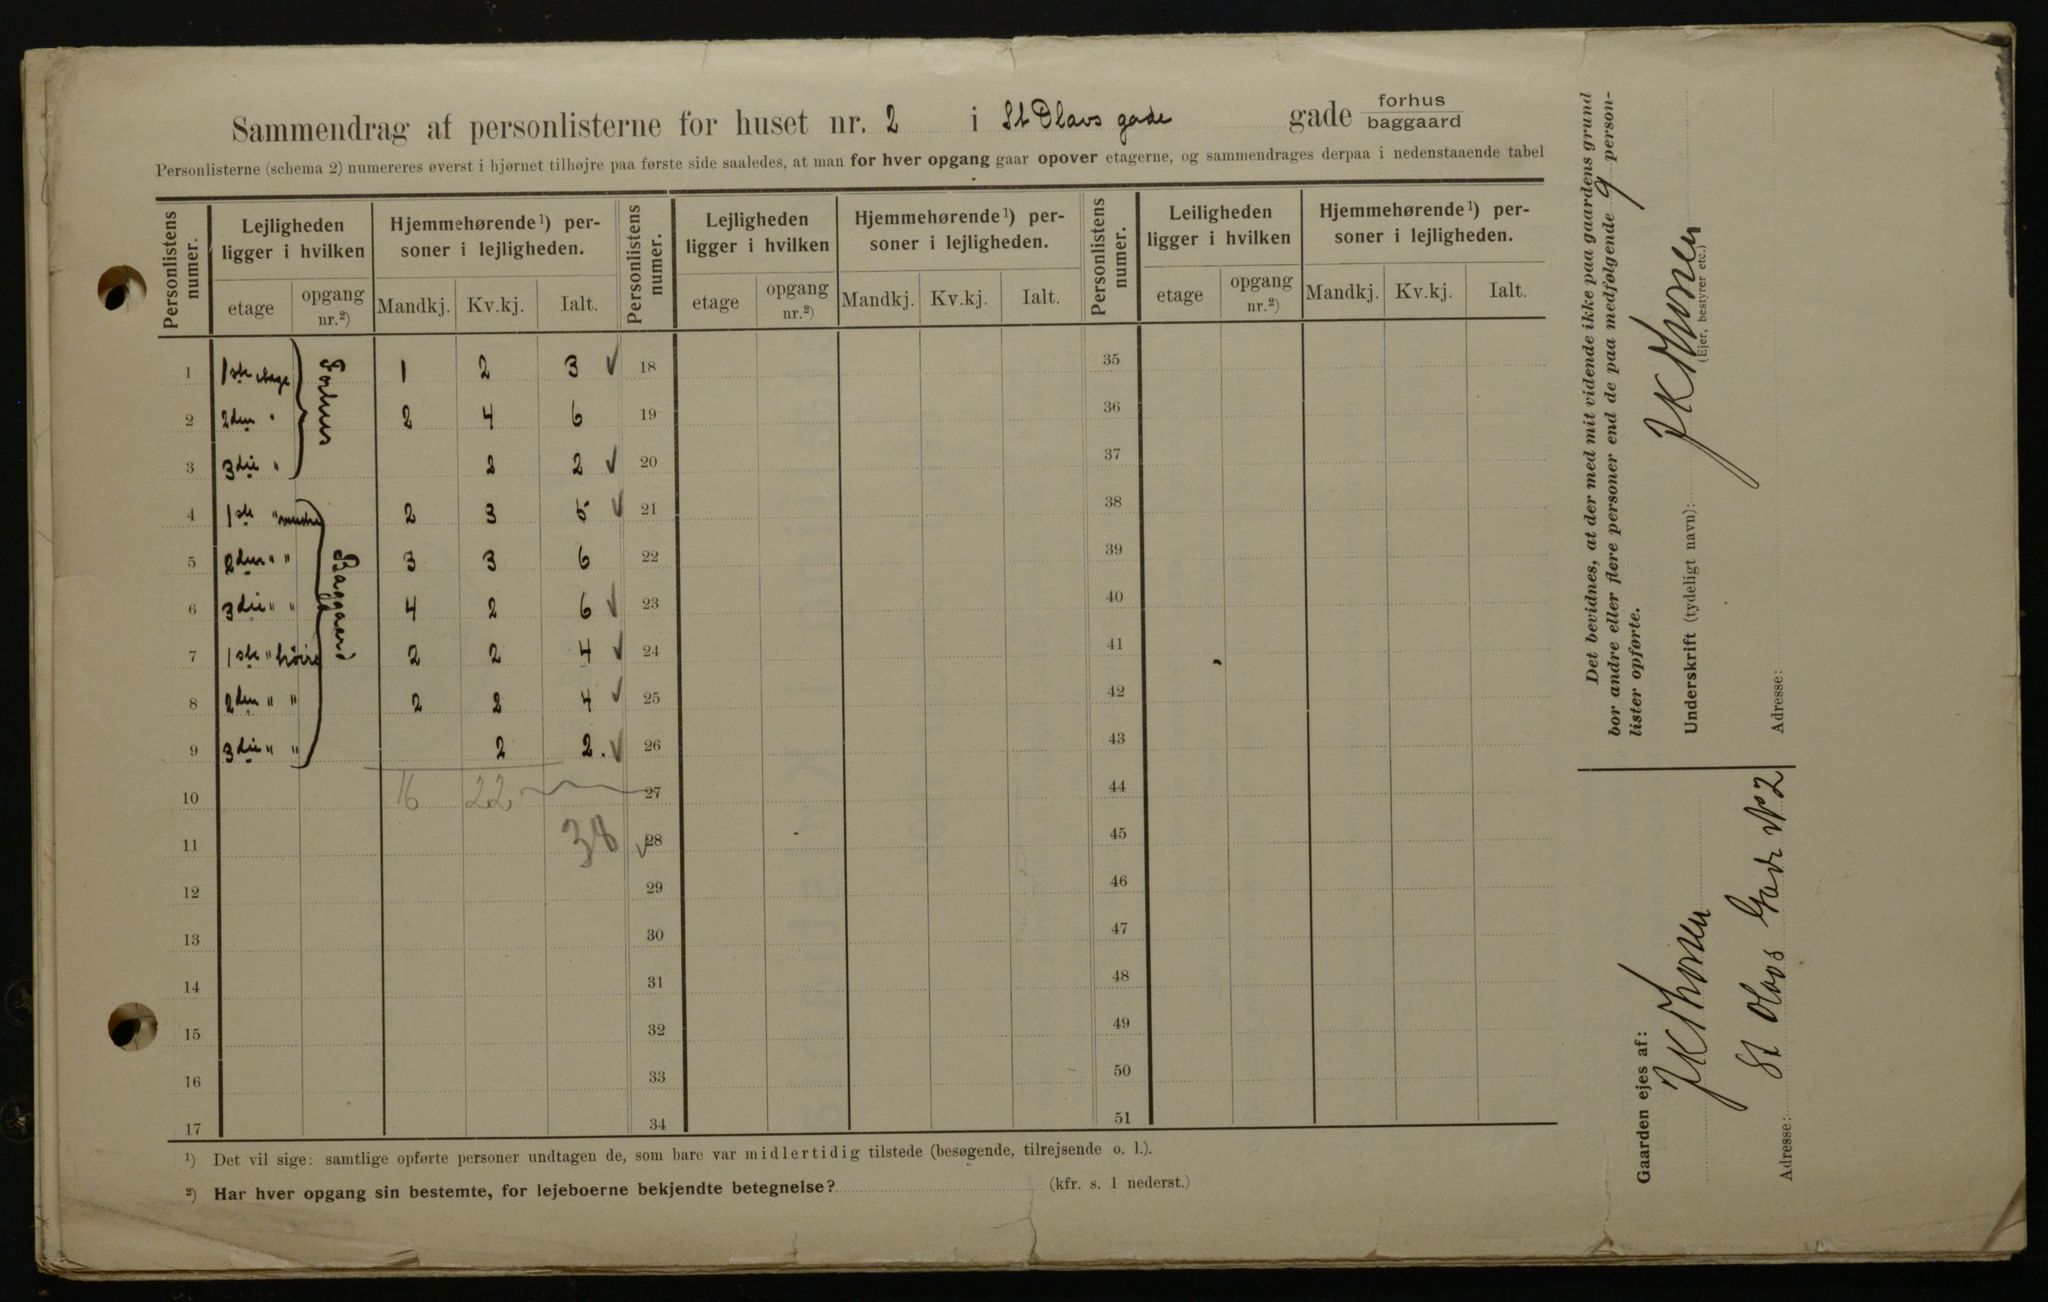 Sammendrag af personlisterne for huset nr. 2 i St Olavs gade gade forhus baggaard
Personlisterne (schema 2) numereres øverst i hjørnet tilhøjre paa første side saaledes, at man for hver opgang gaar opover etagerne, og sammendrages derpaa i nedenstaaende tabel
Personlistens numer. Lejligheden ligger i hvilken Hjemmehørende¹) personer i lejligheden. Personlistens numer. Lejligheden ligger i hvilken Hjemmehørende¹) personer i lejligheden. Personlistens numer. Leiligheden ligger i hvilken Hjemmehørende¹) personer i lejligheden.
etage opgang nr.²) Mandkj. Kv.kj. Ialt. etage opgang nr.²) Mandkj. Kv.kj. Ialt. etage opgang nr.²) Mandkj. Kv.kj. Ialt.
Forhus
1 1ste etage 1 2 3 ✓ 18 35
2 2den " 2 4 6 19 36
3 3die " 2 2 ✓ 20 37
Baggaard
4 1ste " 2 3 5 ✓ 21 38
5 2den " " 3 3 6 22 39
6 3die " " 4 2 6 ✓ 23 40
7 1ste " høire 2 2 4 ✓ 24 41
8 2den " " 2 2 4 ✓ 25 42
9 3die " " 2 2. ✓ 26 43
10 16 22 27 44
11 38 ✓ 28 45
12 29 46
13 30 47
14 31 48
15 32 49
16 33 50
17 34 51
¹) Det vil sige: samtlige opførte personer undtagen de, som bare var midlertidig tilstede (besøgende, tilrejsende o. l.).
²) Har hver opgang sin bestemte, for lejeboerne bekjendte betegnelse? (kfr. s. 1 nederst.)
Det bevidnes, at der med mit vidende ikke paa gaardens grund
bor andre eller flere personer end de paa medfølgende 9 person-
lister opførte.
Underskrift (tydeligt navn): J K Thorsen
(Ejer, bestyrer etc.)
Adresse:
Gaarden ejes af:
J K Thorsen
Adresse: St Olavs Gade No 2